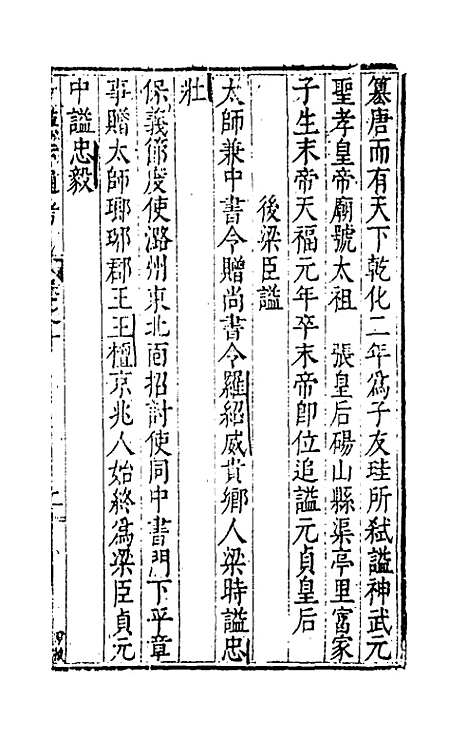 篡唐而有天下乾化二年爲子友珪所弑謚神武元
聖孝皇帝廟號太祖　張皇后碭山縣渠亭里富家
子生末帝天福元年卒末帝即位追謚元貞皇后
後梁臣謚
太師兼中書令贈尚書令羅紹威貴鄉人梁時謚忠
壯
保義節度使潞州東北面招討使同中書門下平章
事贈太師瑯琊郡王王檀京兆人始終爲梁臣貞元
中謚忠毅